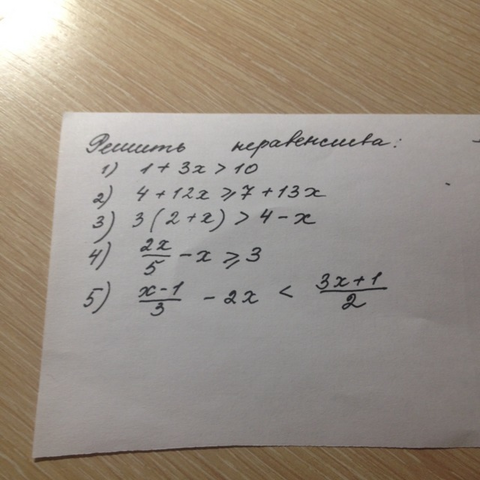 Решить неравенства:
1) 1 + 3x > 10
2) 4 + 12x ⩾ 7 + 13x
3) 3(2 + x) > 4 - x
4) 2x/5 - x ⩾ 3
5) x-1/3 - 2x < 3x+1/2